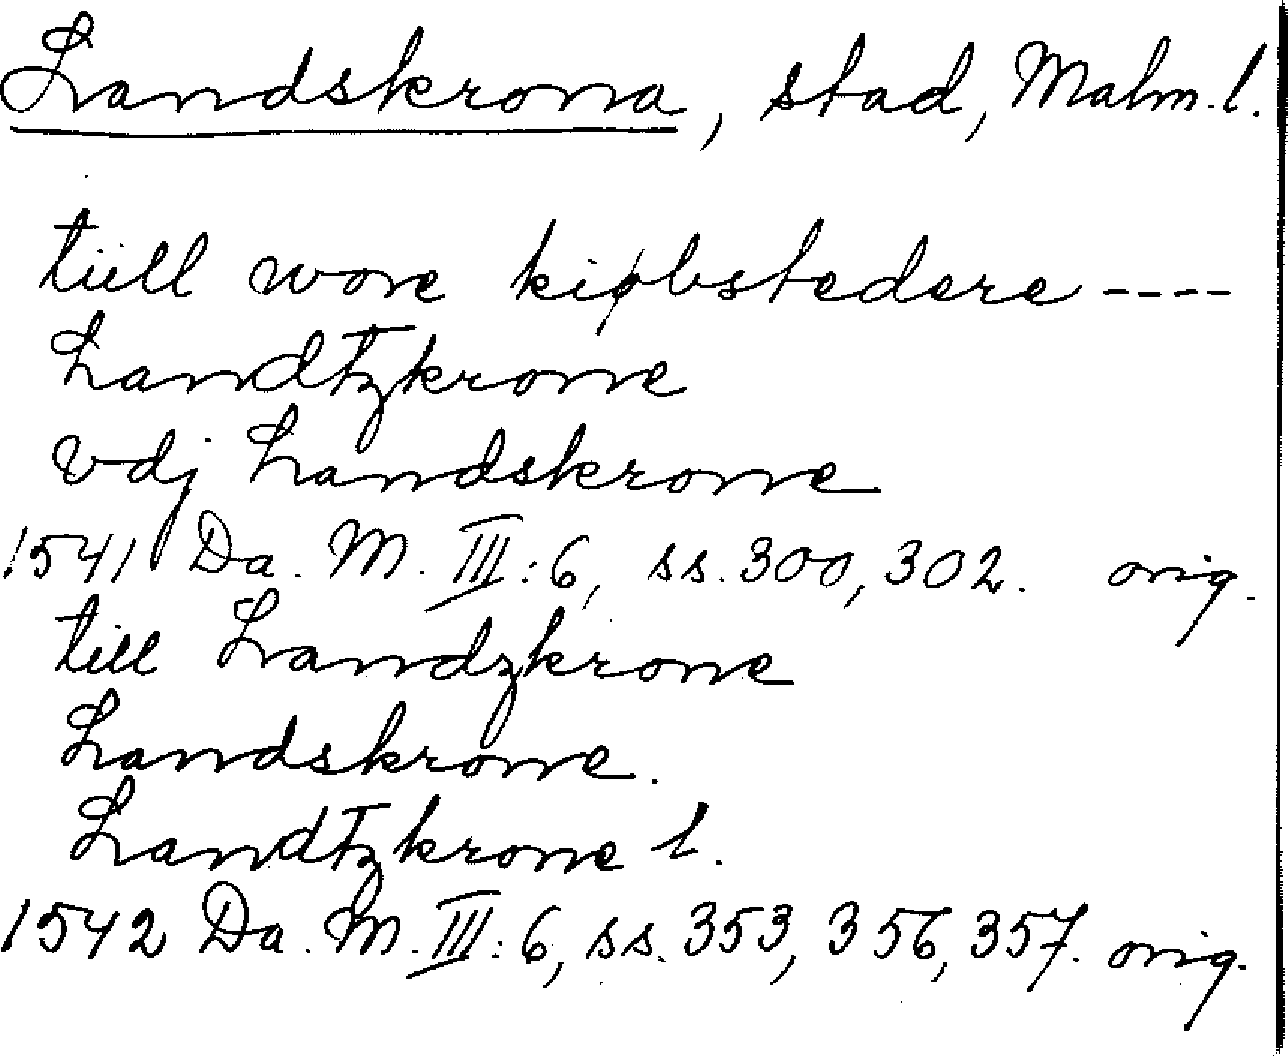 Landskrona, stad, Malm. l.
tiill wore kiøbstedere ----
Landtzkrone
vdj Landskrone
1541 Da. M. III:6, ss. 300, 302. orig.
till Landzkrone
Landskrone.
Landtzkrone l.
1542 Da. M. III:6, ss. 353, 356, 357. orig.